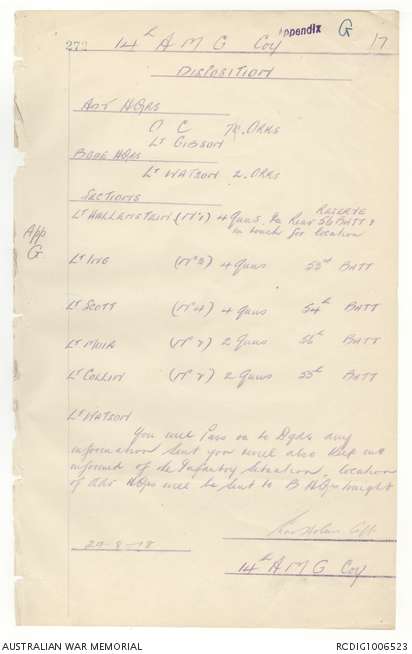 Appendix G 17
272 14th A M G Coy
DISPOSITION
ADV HQRS
O C 7 ORKS
Lt GIBSON
BDE HQRS
Lt WATSON 2 ORKS
SECTIONS
RESERVE
Lt HALLENSTEIN (No 1) 4 Guns. Rear 56 BATT &
in touch for location
App
G
Lt ING (No 3) 4 Guns 53rd BATT
Lt SCOTT (No 4) 4 Guns 54th BATT
Lt MUIR (No 2) 2 Guns 56th BATT
Lt COLLIN (No 2) 2 Guns 55th BATT
Lt WATSON
You will Pass on to Bgde any
information sent you will also keep me
informed of the Infantry situation. location
of Adv HQrs will be sent to B HQrs tonight
Capt
29-8-18
14th A M G Coy
AUSTRALIAN WAR MEMORIAL
RCDIG1006523